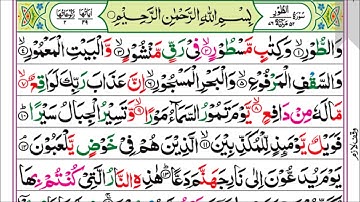 سُوْرَةُ الطُّوْرِ
بِسْمِ اللّٰهِ الرَّحْمٰنِ الرَّحِيْمِ
وَالطُّوْرِ ۙ﴿۱﴾ وَكِتٰبٍ مَّسْطُوْرٍ ۙ﴿۲﴾ فِيْ رَقٍّ مَّنْشُوْرٍ ۙ﴿۳﴾ وَّالْبَيْتِ الْمَعْمُوْرِ ۙ﴿۴﴾
وَالسَّقْفِ الْمَرْفُوْعِ ۙ﴿۵﴾ وَالْبَحْرِ الْمَسْجُوْرِ ۙ﴿۶﴾ اِنَّ عَذَابَ رَبِّكَ لَوَاقِعٌ ۙ﴿۷﴾
مَّا لَهٗ مِنْ دَافِعٍ ۙ﴿۸﴾ يَّوْمَ تَمُوْرُ السَّمَآءُ مَوْرًا ۙ﴿۹﴾ وَّتَسِيْرُ الْجِبَالُ سَيْرًا ؕ﴿۱۰﴾
فَوَيْلٌ يَّوْمَئِذٍ لِّلْمُكَذِّبِيْنَ ۙ﴿۱۱﴾ الَّذِيْنَ هُمْ فِيْ خَوْضٍ يَّلْعَبُوْنَ ۘ﴿۱۲﴾
يَوْمَ يُدَعُّوْنَ اِلٰى نَارِ جَهَنَّمَ دَعًّا ؕ﴿۱۳﴾ هٰذِهِ النَّارُ الَّتِيْ كُنْتُمْ بِهَا